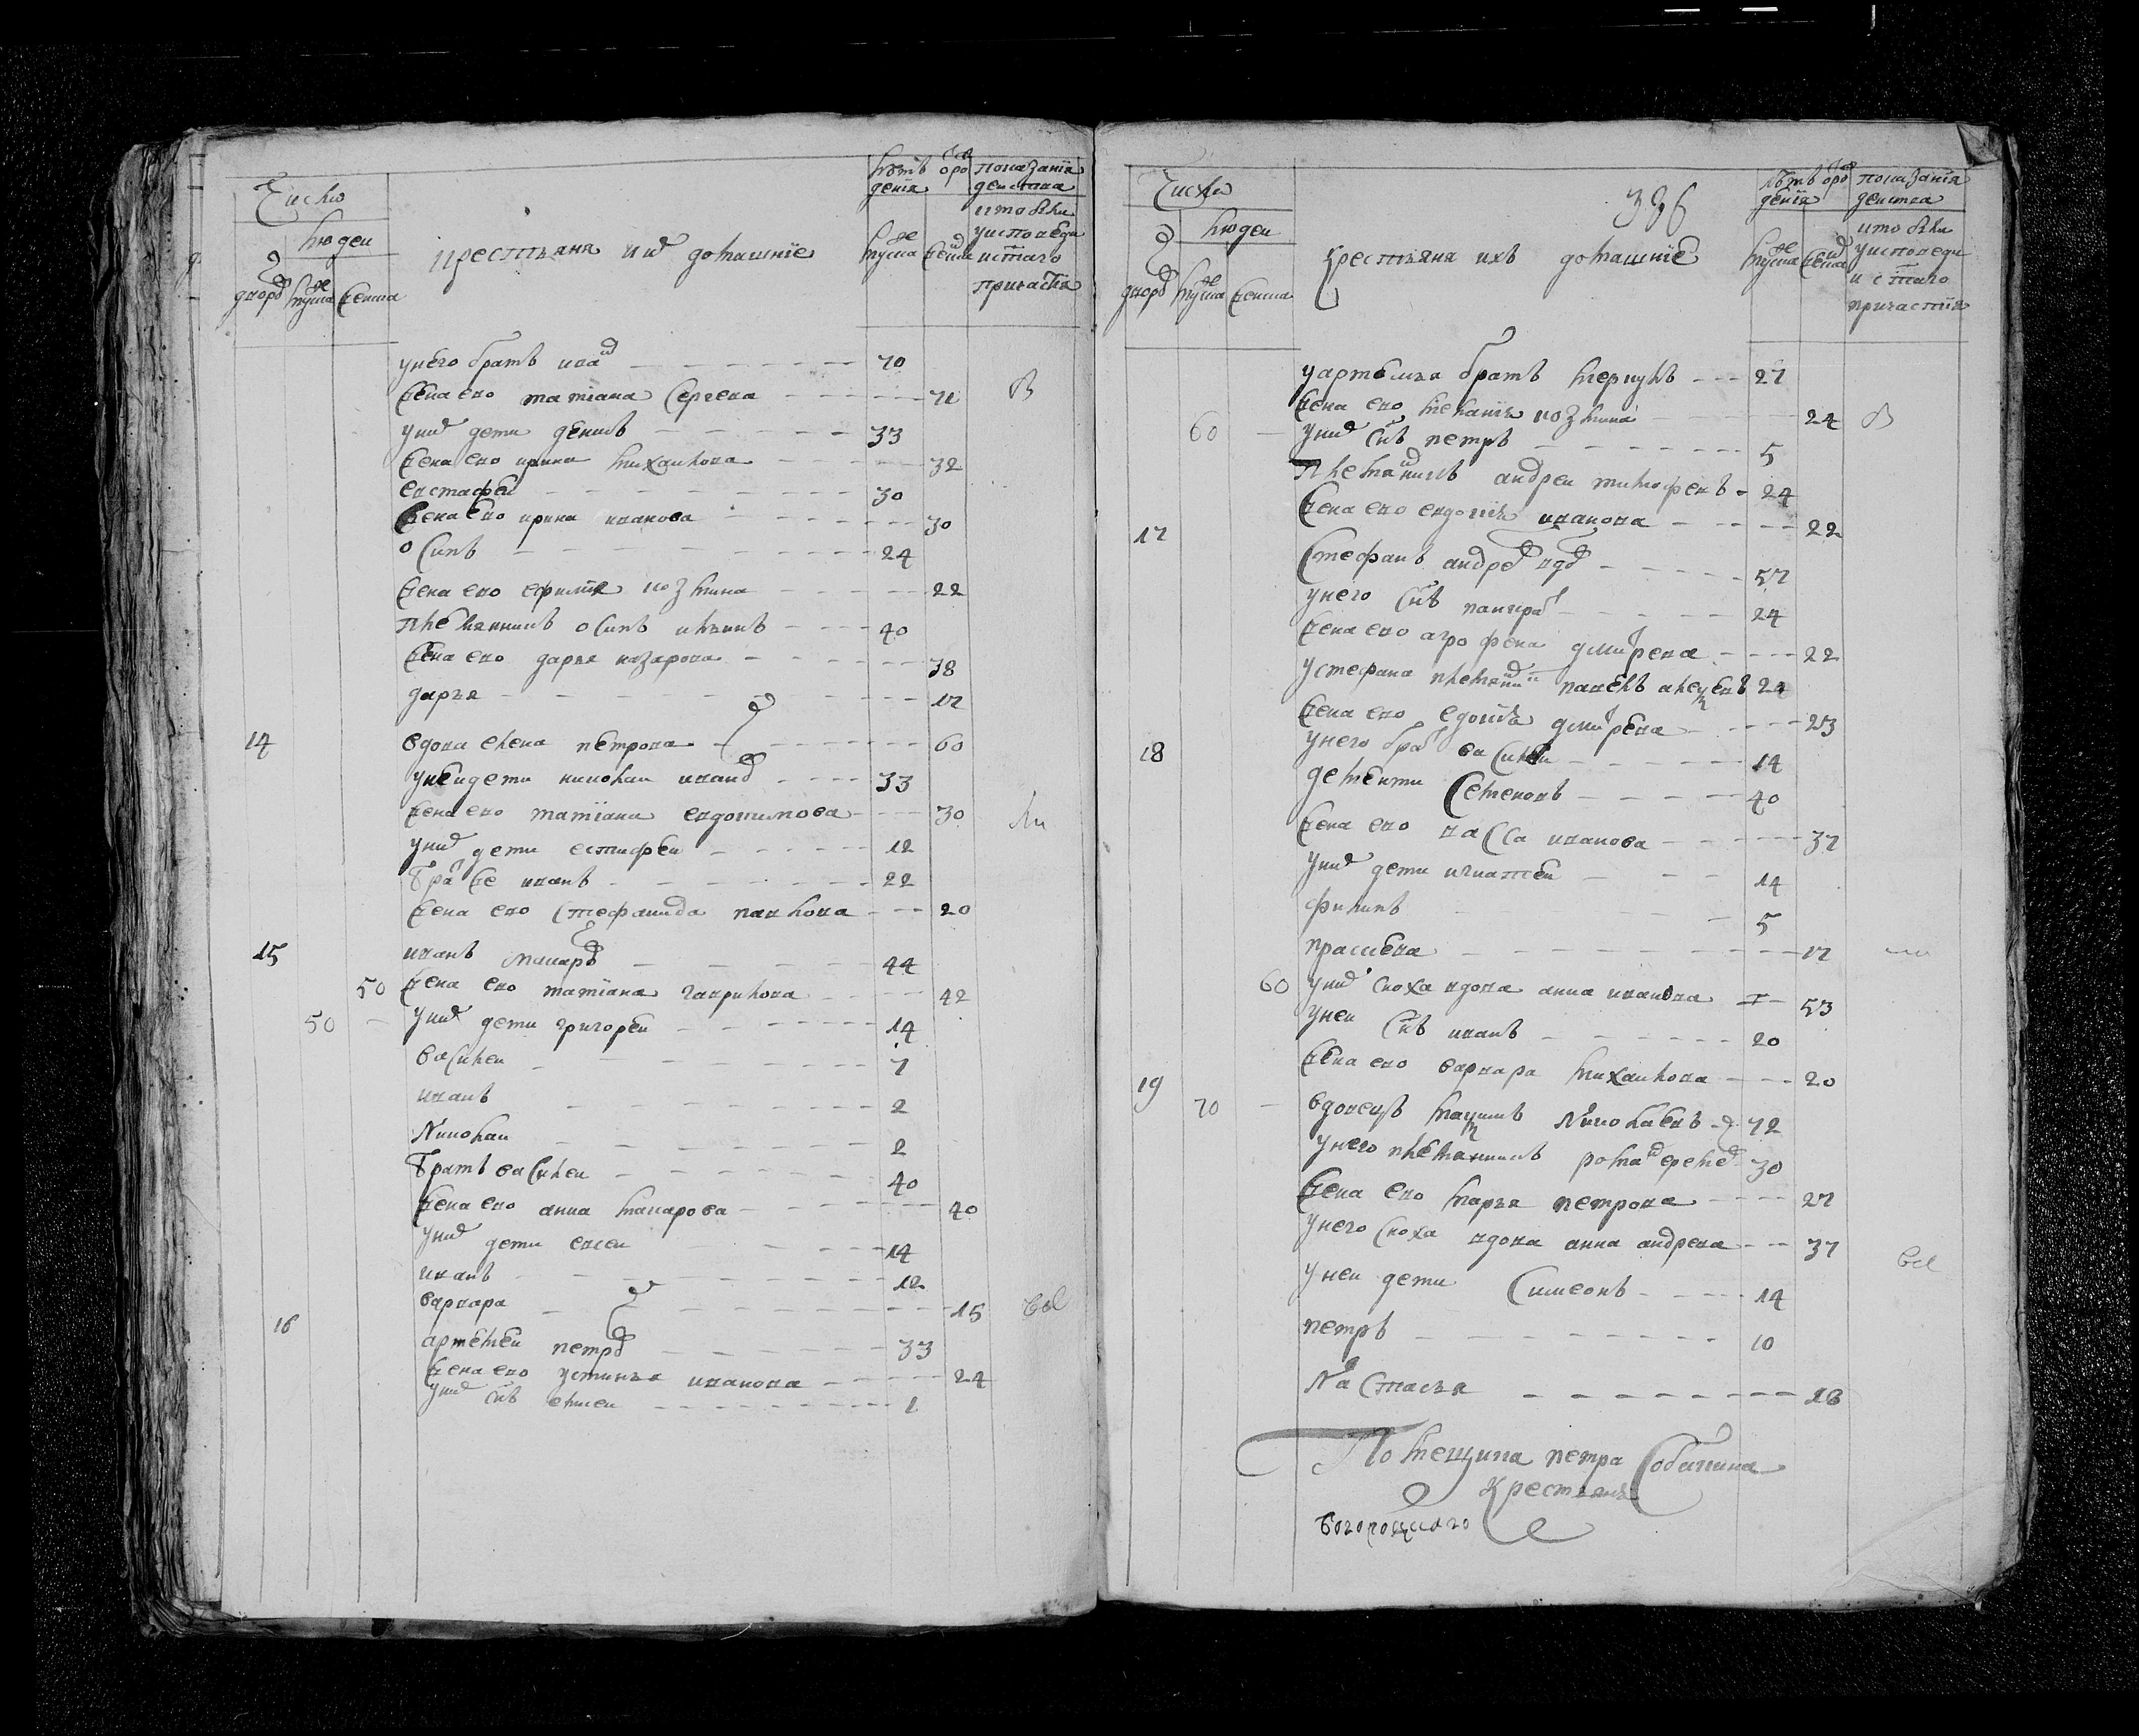 Число
людеи
дворов
мужеска
женска
крестьяня и их домашние
лѣтъ от рождения
мужеска
женска
показания действа
кто были у исповеди и с~таго причастия
у него братъ иван 70
жена ево татiана сергеева 71 В
у них дети денисъ 33
жена ево ирина михаилова 32
евстафеи 30
жена ево ирина иванова 30
осипъ 24
жена ево ефимiя козмина 22
племянникъ осипъ ильинъ 40
жена ево дарья назарова 38
дарья 17
14 вдова елена петрова 60
у неи дети николаи иванов 33
жена ево татiана евдокимова 30 ли
у них дети естифеи 12
брат же иванъ 22
жена ево стефанида павлова 20
15 иванъ макаров 44
50 жена ево татiана гаврилова 42
50 у них дети григореи 14
василеи 7
иванъ 2
николаи 2
братъ василеи 40
жена ево анна макарова 40
у них дети евсеи 14
иванъ 12
варвара 15 бы
16 артемеи петров 33
жена ево устинья иванова 24
у них с~нъ 1
Число
людеи
дворов
мужеска
женска
386
крестьяня ихъ домашние
лѣтъ от рождения
мужеска
женска
показания действа
кто были у исповеди и с~таго причастия
у артемья братъ меркулъ 27
жена ево меланiя козмина 24 В
60 у них с~нъ петръ 5
племянникъ андреи тимофеевъ 24
жена ево евдокiя иванова 22
17 стефанъ андреев вдов 57
у него с~нъ панкрат 24
жена ево агрофена дмитрева 22
у стефана племянник павелъ алексеевъ 24
жена ево едокiя дмитрева 23
18 у него брат василеи 14
дементи семеновъ 40
жена ево васса иванова 37
у них дети игнатеи 14
филипъ 5
прасковя 17 ли
60 у них сноха вдова анна иванова 53
у неи с~нъ иванъ 20
жена ево варвара михаилова 20
19 70 вдовецъ максимъ николаевъ 72
у него племянникъ роман еремеев 30
жена ево марья петрова 27
у него сноха вдова анна андреева 37
у неи дети симеонъ 14 бы
петръ 10
настасья 18
помещика петра собакина
крестьяня
богороцкаго